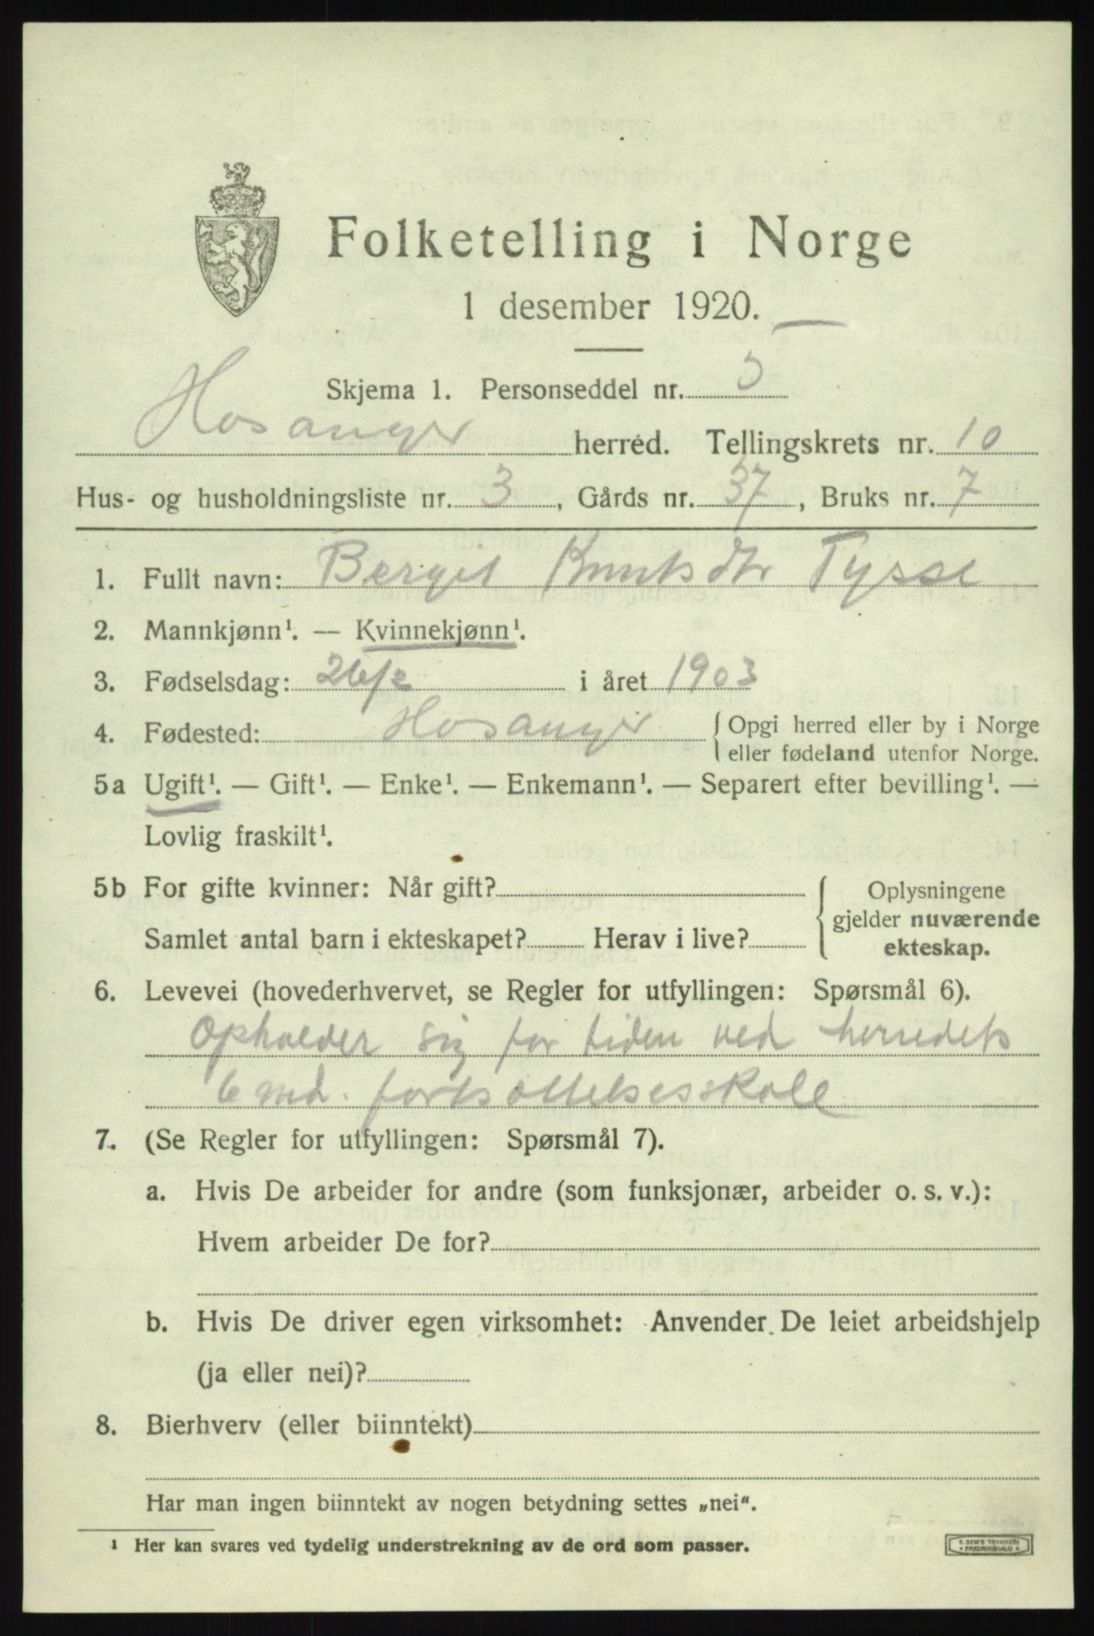 Folketelling i Norge
1 desember 1920.
Skjema 1. Personseddel nr. 3
Hosanger herred. Tellingskrets nr. 10
Hus- og husholdningsliste nr. 3, Gårds nr. 37, Bruks nr. 7
1. Fullt navn: Berget Knutsdtr Tysse
2. Mannkjønn¹. — Kvinnekjønn¹.
3. Fødselsdag: 26/2 i året 1903
4. Fødested: Hosanger {Opgi herred eller by i Norge
eller fødeland utenfor Norge.
5a Ugift¹. — Gift¹. — Enke¹. — Enkemann¹. — Separert efter bevilling¹. —
Lovlig fraskilt¹.
5b For gifte kvinner: Når gift? { Oplysningene
gjelder nuværende
Samlet antal barn i ekteskapet? Herav i live? ekteskap.
6. Levevei (hovederhvervet, se Regler for utfyllingen: Spørsmål 6).
Opholder sig for tiden ved herredets
6 md. fortsættelsesskole
7. (Se Regler for utfyllingen: Spørsmål 7).
a. Hvis De arbeider for andre (som funksjonær, arbeider o. s. v.):
Hvem arbeider De for?
b. Hvis De driver egen virksomhet: Anvender De leiet arbeidshjelp
(ja eller nei)?
8. Bierhverv (eller biinntekt)
Har man ingen biinntekt av nogen betydning settes „nei“.
¹ Her kan svares ved tydelig understrekning av de ord som passer.